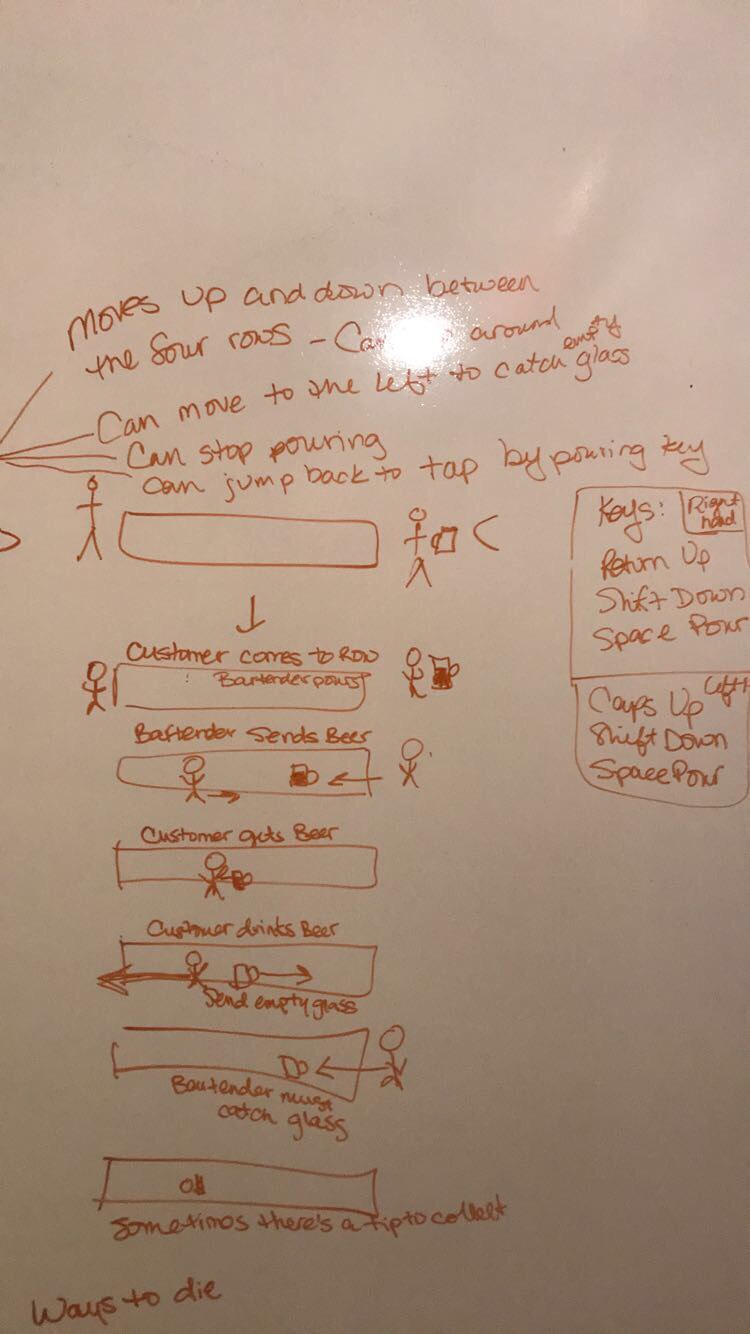 Moves up and down between
the four rows - Ca around
Can move to the left to catch empty glass
Can stop pouring
Can jump back to tap by pouring key
Keys: Right hand
Return Up
Shift Down
Space Pour
Customer comes to Row
Bartender pours
Caps Up Left
Shift Down
Space Pour
Bartender Sends Beer
Customer gets Beer
Customer drinks Beer
Send empty glass
Bartender must
catch glass
Sometimes there's a tip to collect
Ways to die